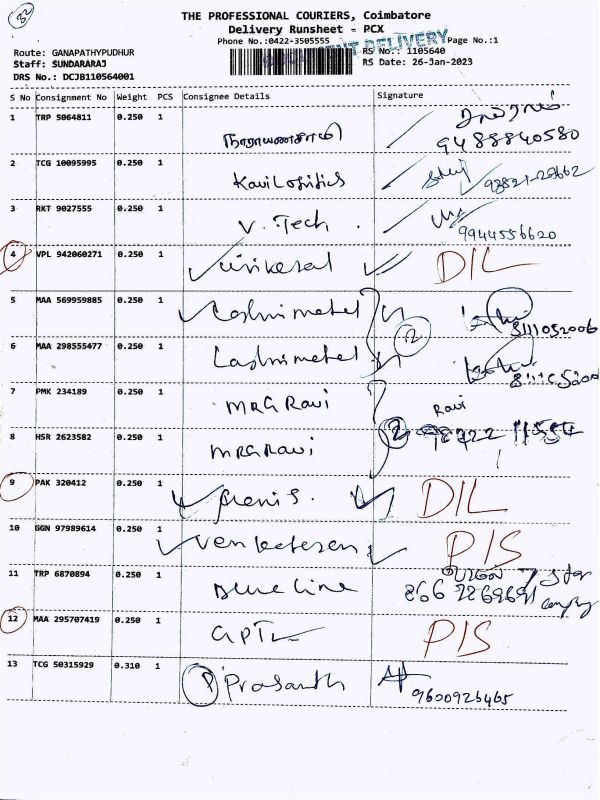 32
THE PROFESSIONAL COURIERS, Coimbatore
Delivery Runsheet - PCX
Phone No.:0422-3505555 Page No.:1
DELIVERY
Route: GANAPATHYPUDHUR RS No.: 1105640
Staff: SUNDARARAJ RS Date: 26-Jan-2023
DRS No.: DCJB110564001
S No Consignment No Weight PCS Consignee Details Signature
1 TRP 5064811 0.250 1 நாராயணசாமி 9488840580
2 TCG 10095995 0.250 1 Kavi Logistics
3 RKT 9027555 0.250 1 V. Tech 9944556620
4 VPL 942060271 0.250 1 universal DIL
5 MAA 569959885 0.250 1 Lashmi metal 8111052006
6 MAA 298555477 0.250 1 Lashmi metal
2
7 PMK 234189 0.250 1 MRG Ravi Ravi
8 HSR 2623582 0.250 1 MRG Ravi 2
9 PAK 320412 0.250 1 DIL
10 GGN 97989614 0.250 1 Venketesen P/S
11 TRP 6870894 0.250 1 Blue Line
12 MAA 295707419 0.250 1 GPTL P/S
13 TCG 50315929 0.310 1 P Prasanth 9600926465